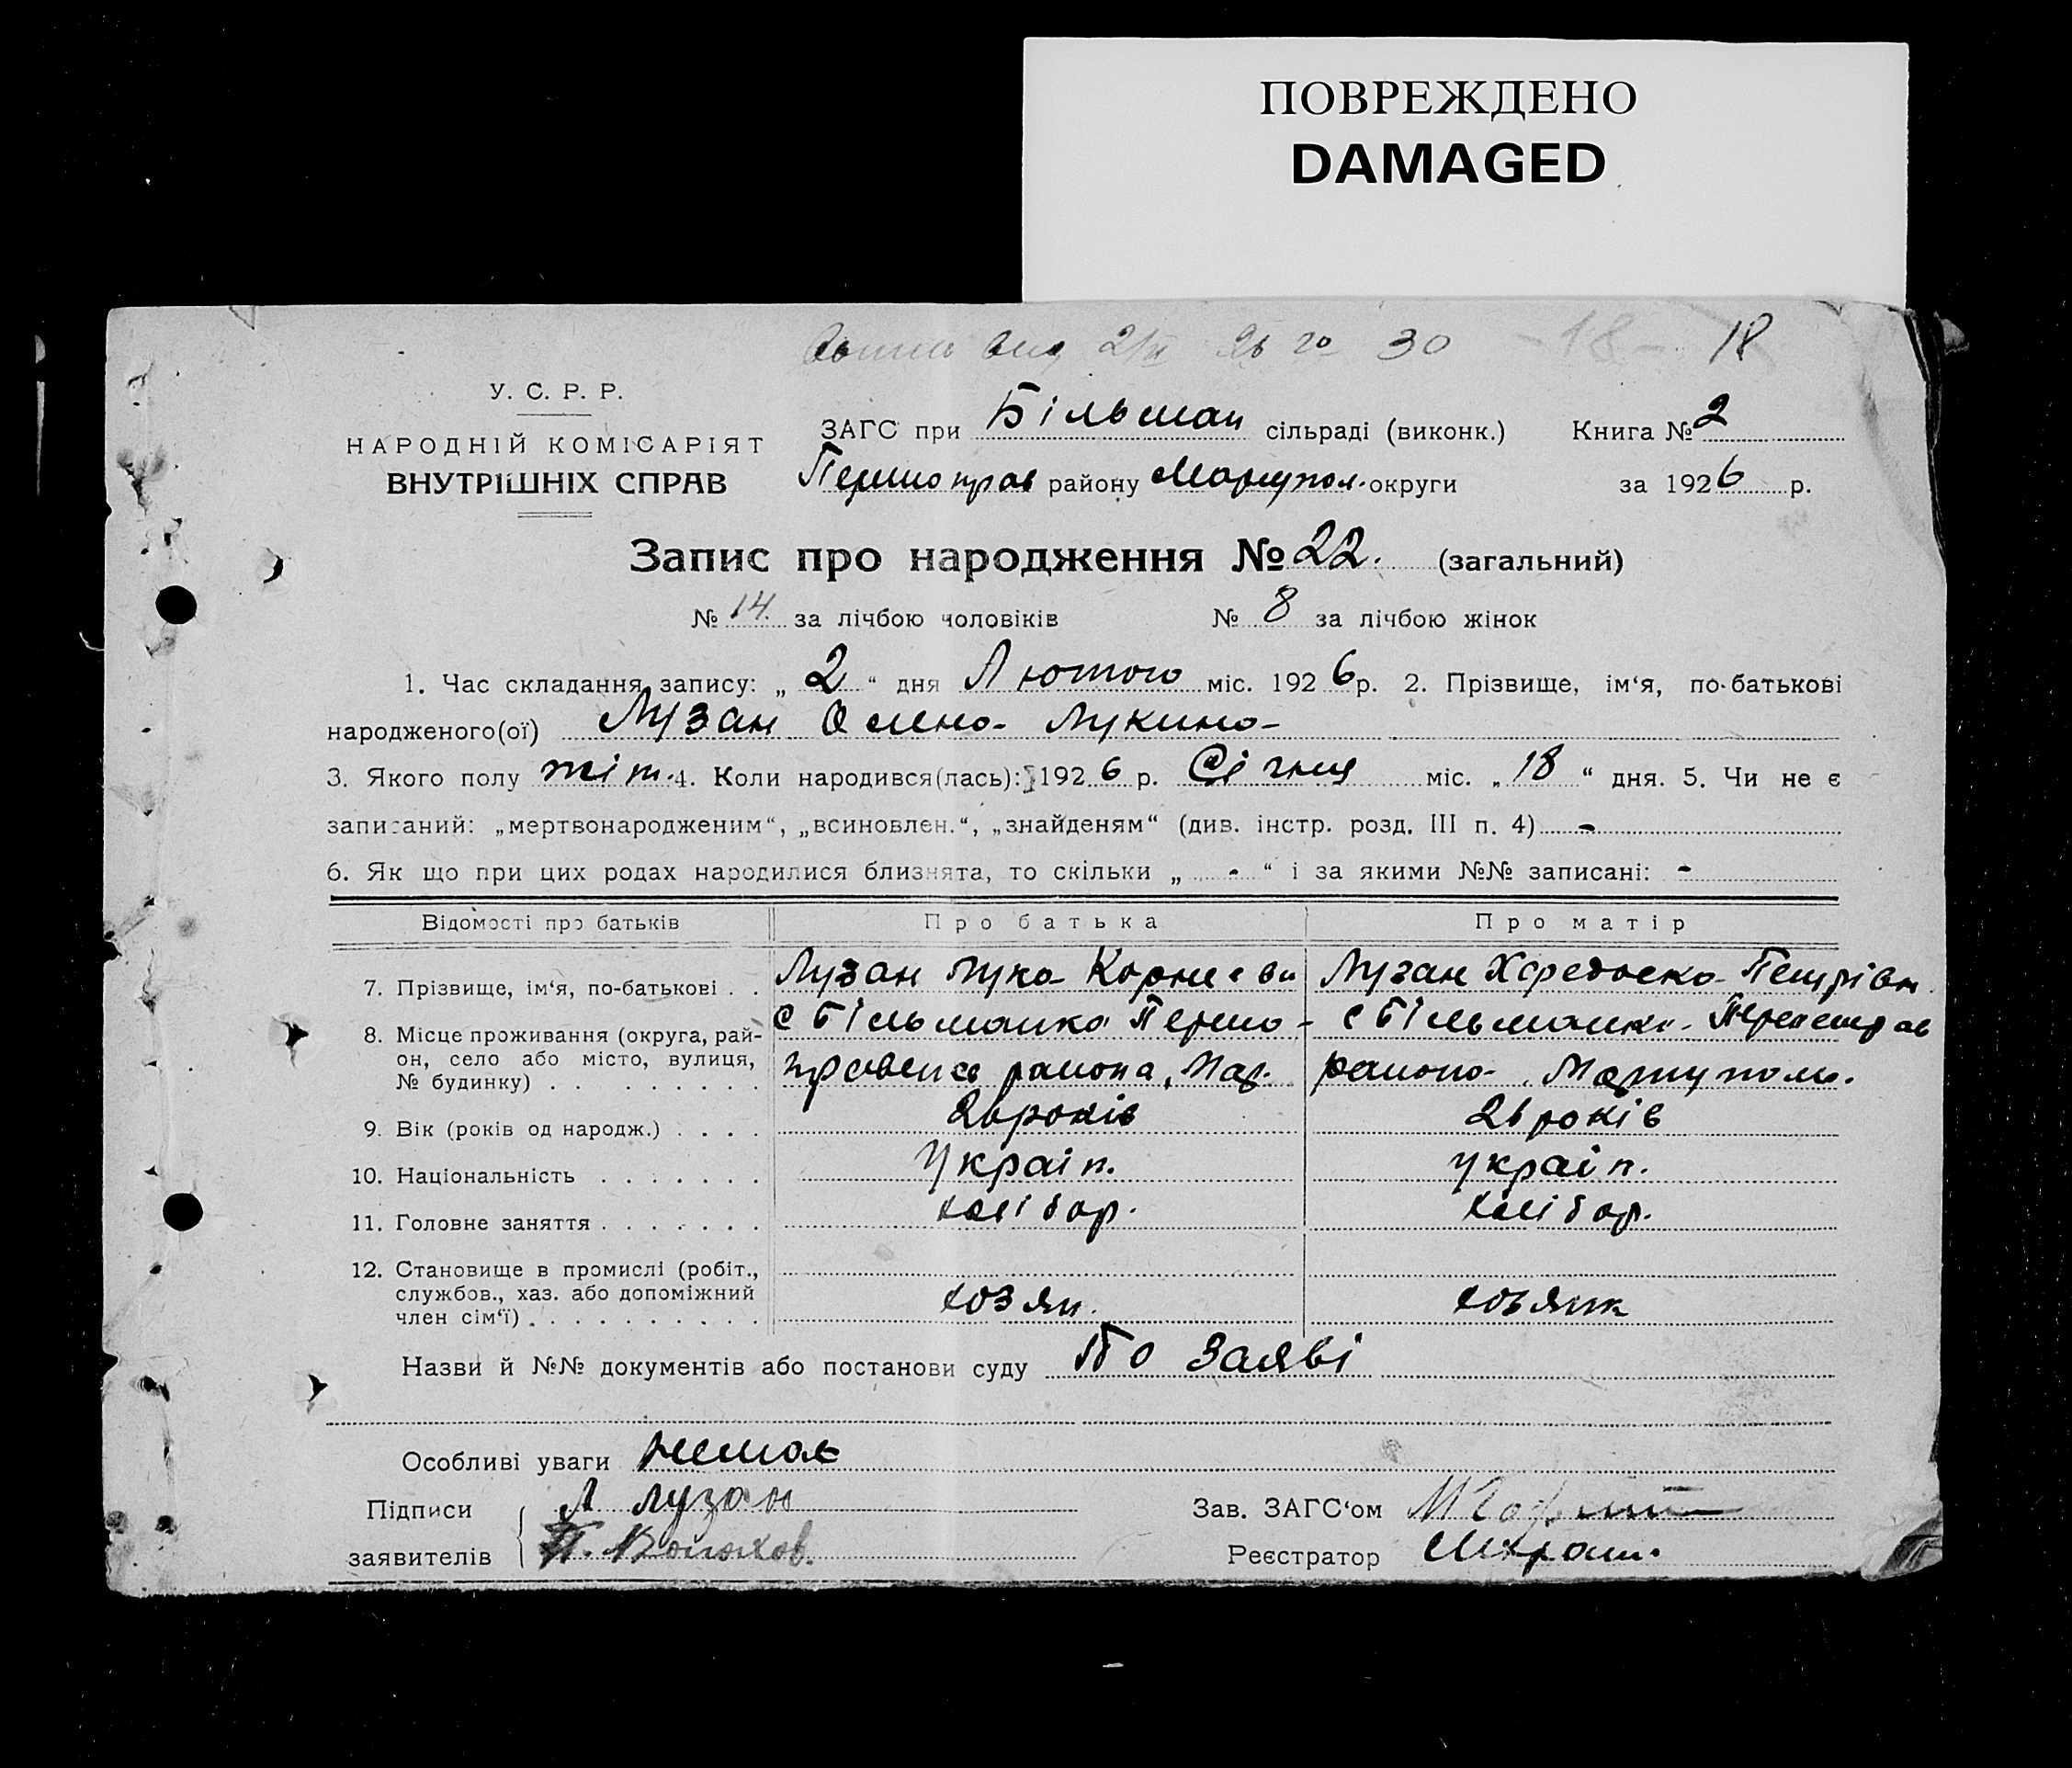 ПОВРЕЖДЕНО
DAMAGED
30 18 18
У. С. Р. Р.
НАРОДНІЙ КОМІСАРІЯТ
ВНУТРІШНІХ СПРАВ
ЗАГС при Більман сільраді (виконк.) Книга № 2
Першотрав району Маріупол. округи за 1926 р.
Запис про народження № 22. (загальний)
№ 14. за лічбою чоловіків № 8 за лічбою жінок
1. Час складання запису: „ 2 “ дня Лютого міс. 1926 р. 2. Прізвище, ім‘я, по-батькові
народженого(ої) Лузан Олена Лукина
3. Якого полу 4. Коли народився(лась): 1926 р. Січня міс. „ 18 “ дня. 5. Чи не є
записаний: „мертвонародженим“, „всиновлен.“, „знайденям“ (див. інстр. розд. III п. 4) -
6. Як що при цих родах народилися близнята, то скільки „ - “ і за якими №№ записані: -
Відомості про батьків Про батька Про матір
7. Прізвище, ім‘я, по-батькові . . Лузан Лука Корнієви Лузан Петрівн
8. Місце проживання (округа, рай-
он, село або місто, вулиця,
№ будинку) . . . . . . . .
с Більманка Першо-
района, Мар.
с Більманка
района Маріупол.
9. Вік (років од народж.) . . . . 26 років 26 років
10. Національність . . . . . . . Україн. україн.
11. Головне заняття . . . . . . . хлібор. хлібор.
12. Становище в промислі (робіт.,
службов., хаз. або допоміжний
член сім‘ї) . . . . . . . . . . хозяи. хозяик
Назви й №№ документів або постанови суду По Заяві
Особливі уваги Немає
Підписи Л Лузан Зав. ЗАГС‘ом
заявителів П. Реєстратор